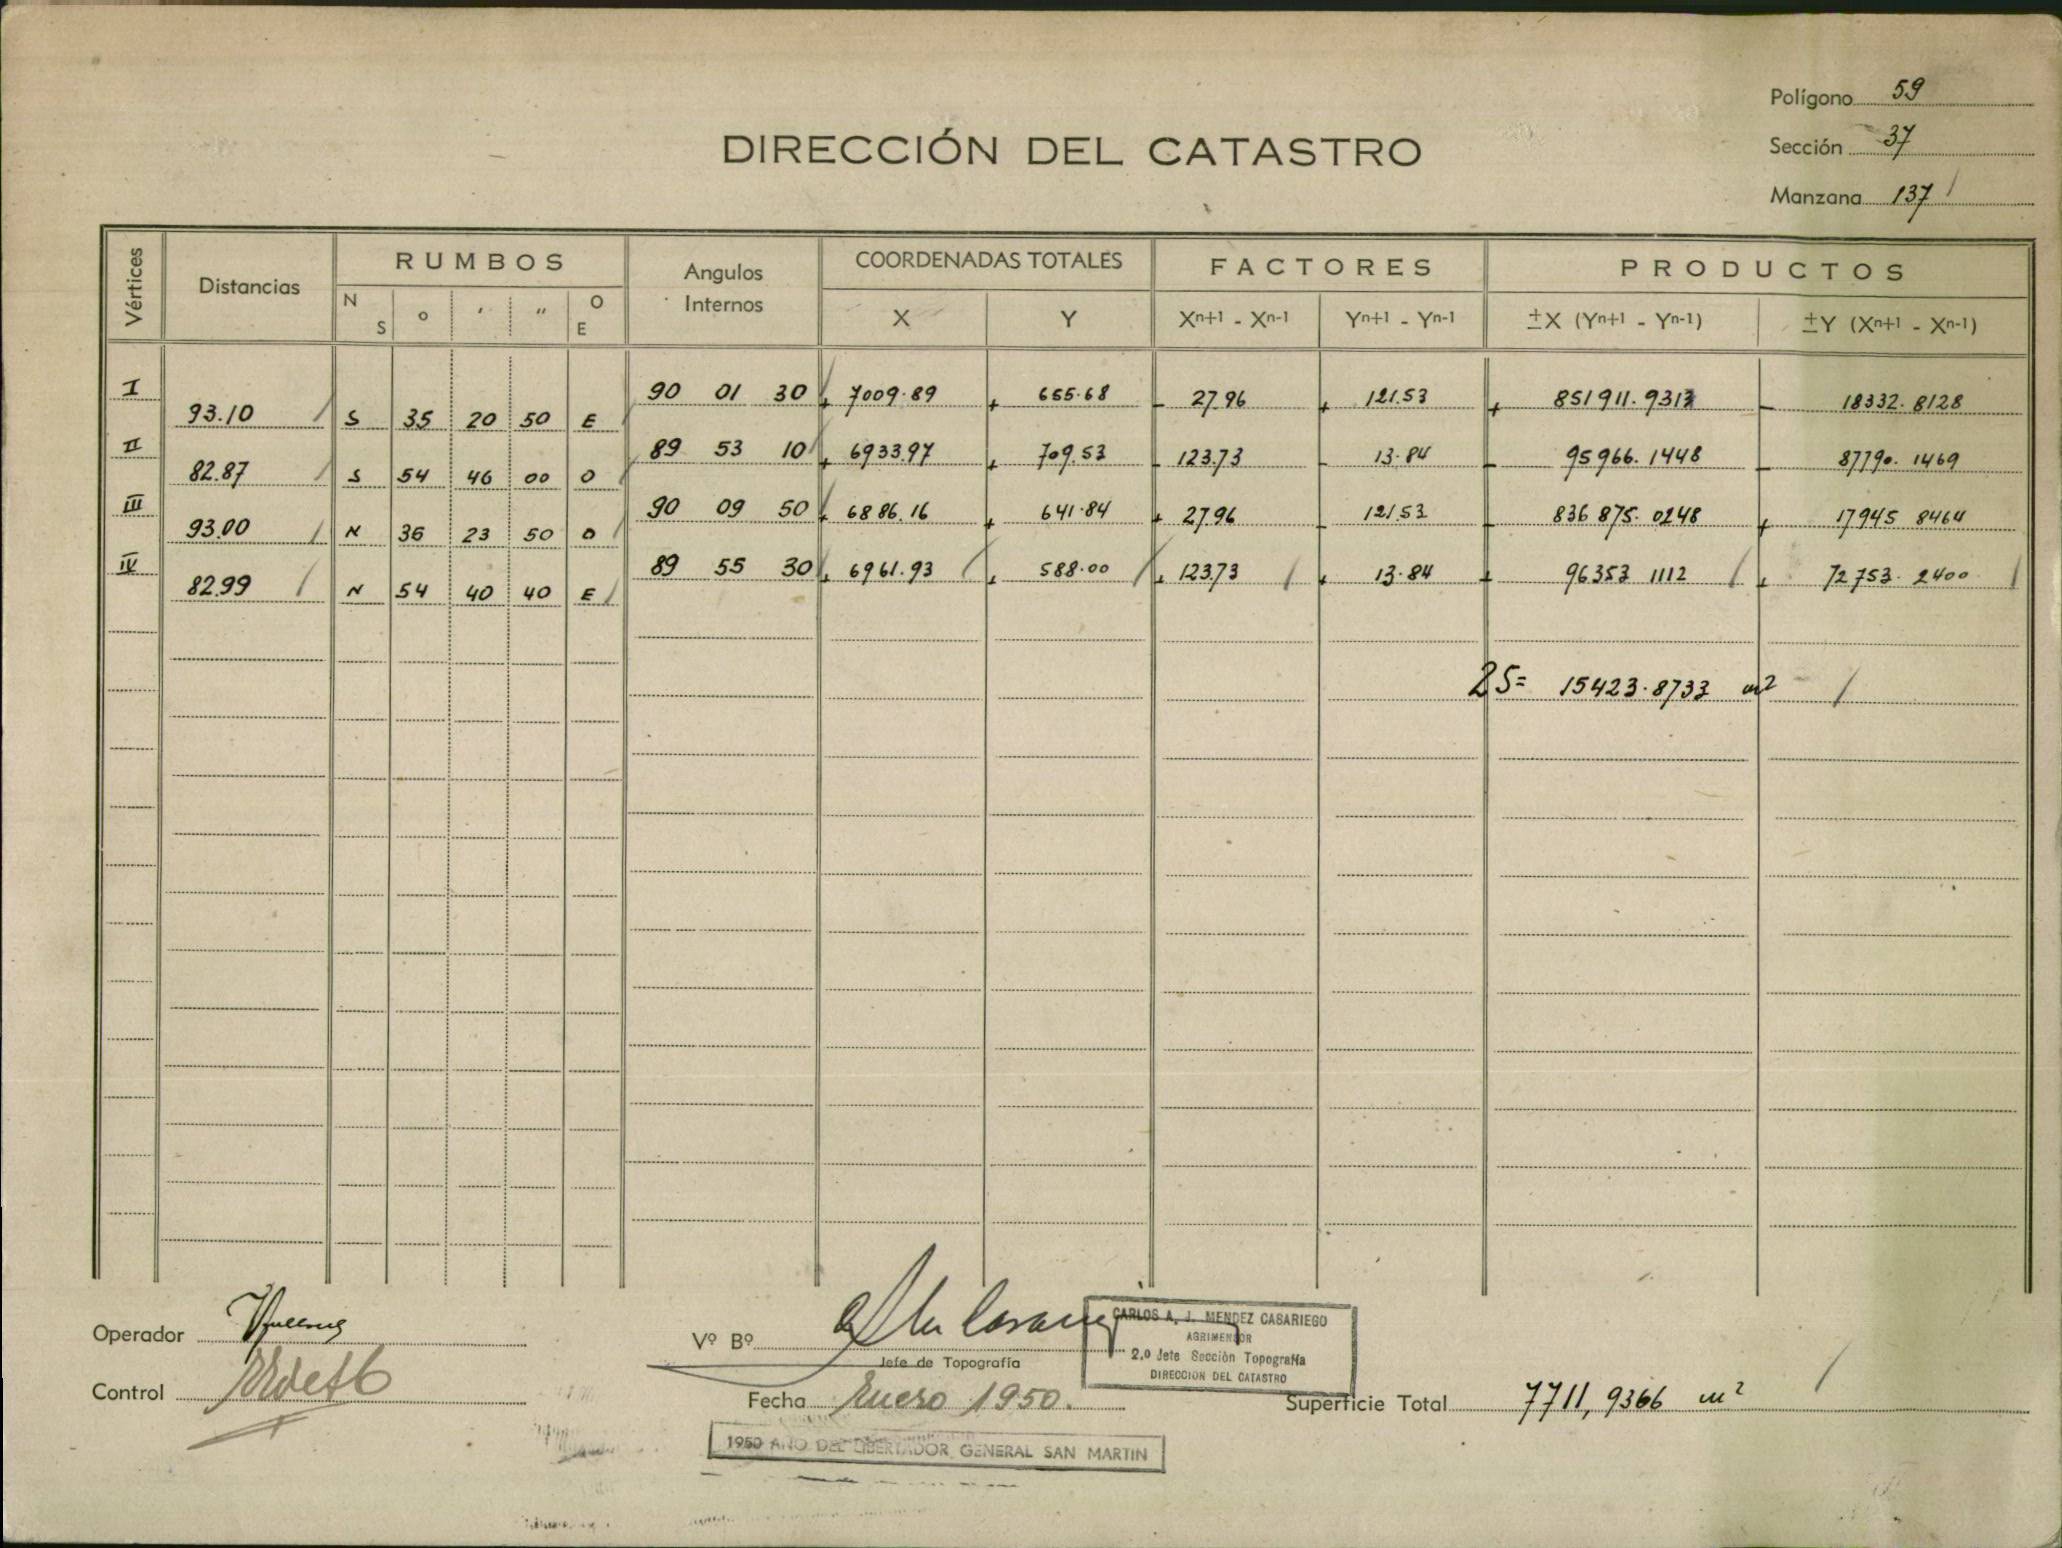 Polígono 59
DIRECCIÓN DEL CATASTRO
Sección 37
Manzana 137
Vértices Distancias RUMBOS Angulos Internos COORDENADAS TOTALES FACTORES PRODUCTOS
N S ° ′ ″ O E X Y Xn+1 - Xn-1 Yn+1 - Yn-1 ±X (Yn+1 - Yn-1) ±Y (Xn+1 - Xn-1)
I 90 01 30 + 7009.89 + 655.68 - 27.96 + 121.53 + 851911.9317 - 18332.8128
93.10 S 35 20 50 E
II 89 53 10 + 6933.97 + 709.53 - 123.73 - 13.84 - 95966.1448 - 87790.1469
82.87 S 54 46 00 O
III 90 09 50 + 6886.16 + 641.84 + 27.96 - 121.53 - 836875.0248 + 17945 8464
93.00 N 35 23 50 O
IV 89 55 30 + 6961.93 + 588.00 + 123.73 + 13.84 + 96353 1112 + 72753.2400
82.99 N 54 40 40 E
2S= 15423.8733 m2
Operador
Vº Bº
Jefe de Topografía
CARLOS A. J. MENDEZ CASARIEGO
AGRIMENSOR
2.º Jefe Sección Topografía
DIRECCION DEL CATASTRO
Control
Fecha Enero 1950.
Superficie Total 7711,9366 m2
1950 AÑO DEL LIBERTADOR GENERAL SAN MARTIN